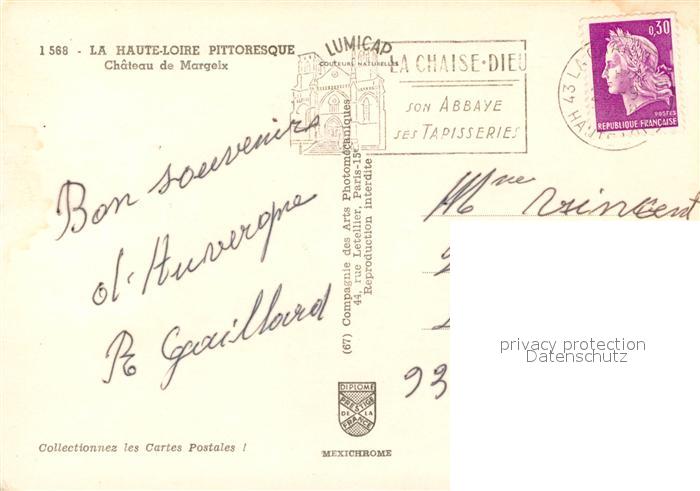 1 568 - LA HAUTE-LOIRE PITTORESQUE
Château de Margeix
LUMICAP
COULEURS NATURELLES
LA CHAISE-DIEU
SON ABBAYE
SES TAPISSERIES
0,30
POSTES
REPUBLIQUE FRANÇAISE
43 LA
HAUTE
Bon souvenirs
d'Auvergne
R Gaillard
(67) Compagnie des Arts Photomécaniques
44, rue Letellier, Paris-15e
Reproduction interdite
Mme Vincent
93
privacy protection
Datenschutz
DIPLOME
PRESTIGE
DE LA
FRANCE
MEXICHROME
Collectionnez les Cartes Postales !